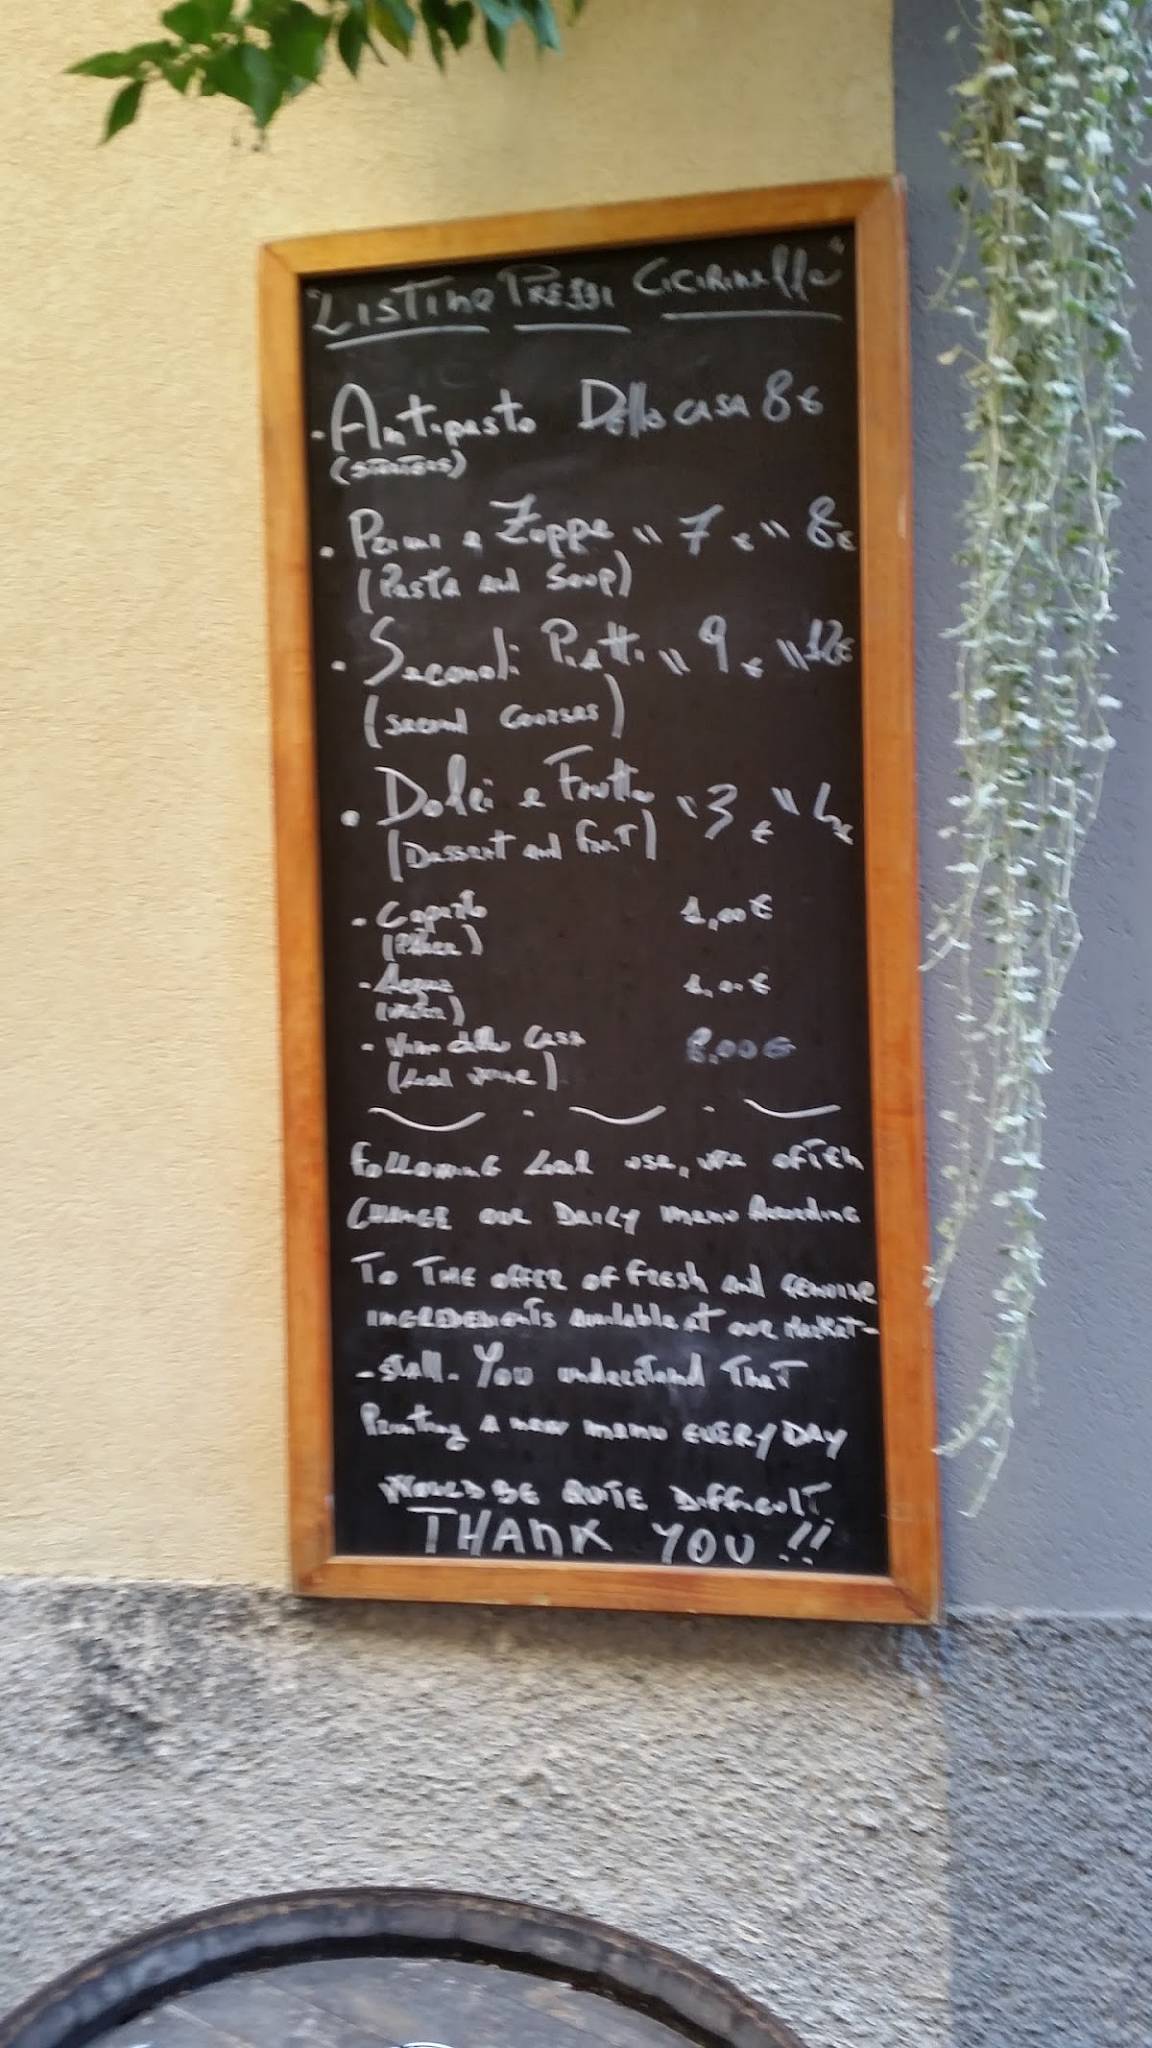 "Listino Prezzi Cicirinella"
- Antipasto Della casa 8€
(starters)
- Primi e Zuppe " 7€ " 8€
(Pasta and Soup)
- Secondi Piatti " 9€ " 12€
(second courses)
- Dolci e Frutta " 3€ " 4€
(Dessert and fruit)
- Coperto 1,00€
(Place)
- Acqua 1,00€
(water)
- Vino della Casa 8,00€
(Local wine)
Following Local use, we often
CHANGE our DAILY menu According
To THE OFFER OF fresh and genuine
ingredients available at our market-
-stall. You understand That
Printing a new menu EVERY DAY
WOULD BE QUITE Difficult.
THANK YOU!!